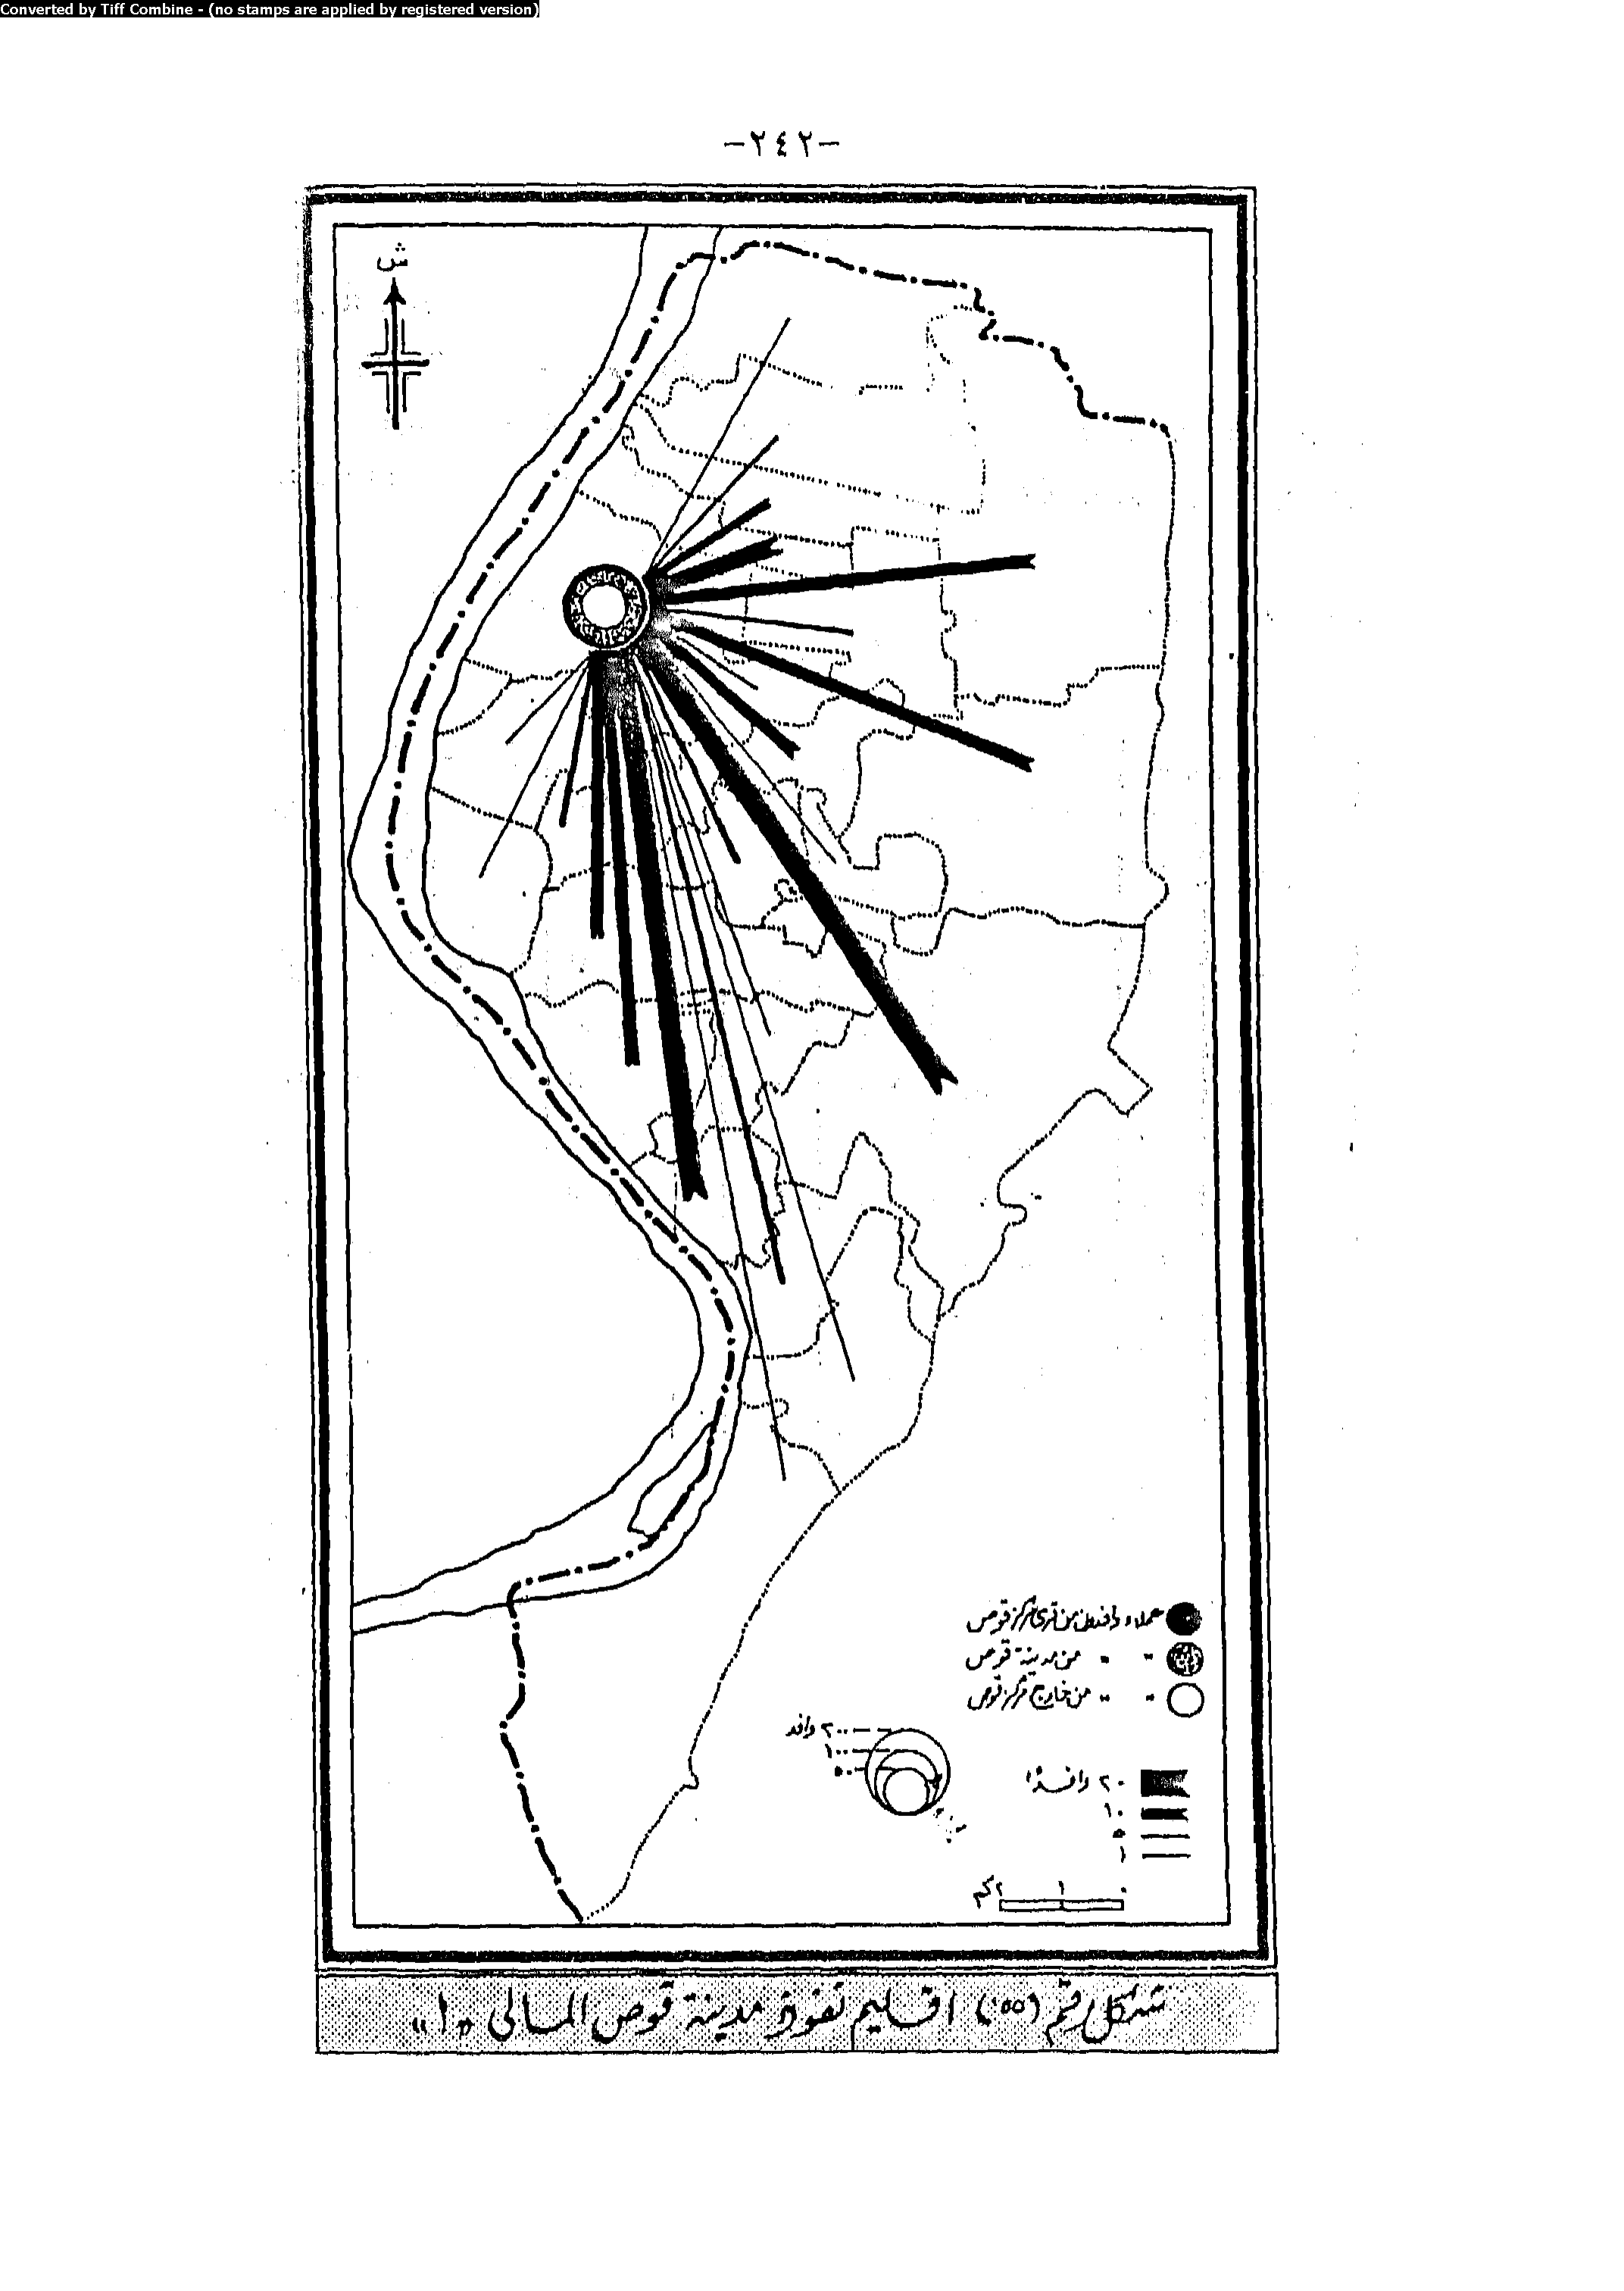 Converted by Tiff Combine - (no stamps are applied by registered version)
-٢٤٢-
ش
عملاء وافدون من قرى مركز قوص
" " من مدينة قوص
" " من خارج مركز قوص
٢٠٠ وافد
١٠٠
٥٠
٢٠ وافدًا
١٠
٥
١
٢ كم ١ ٠
شكل رقم (٥٥) اقليم نفوذ مدينة قوص المالى "ا"